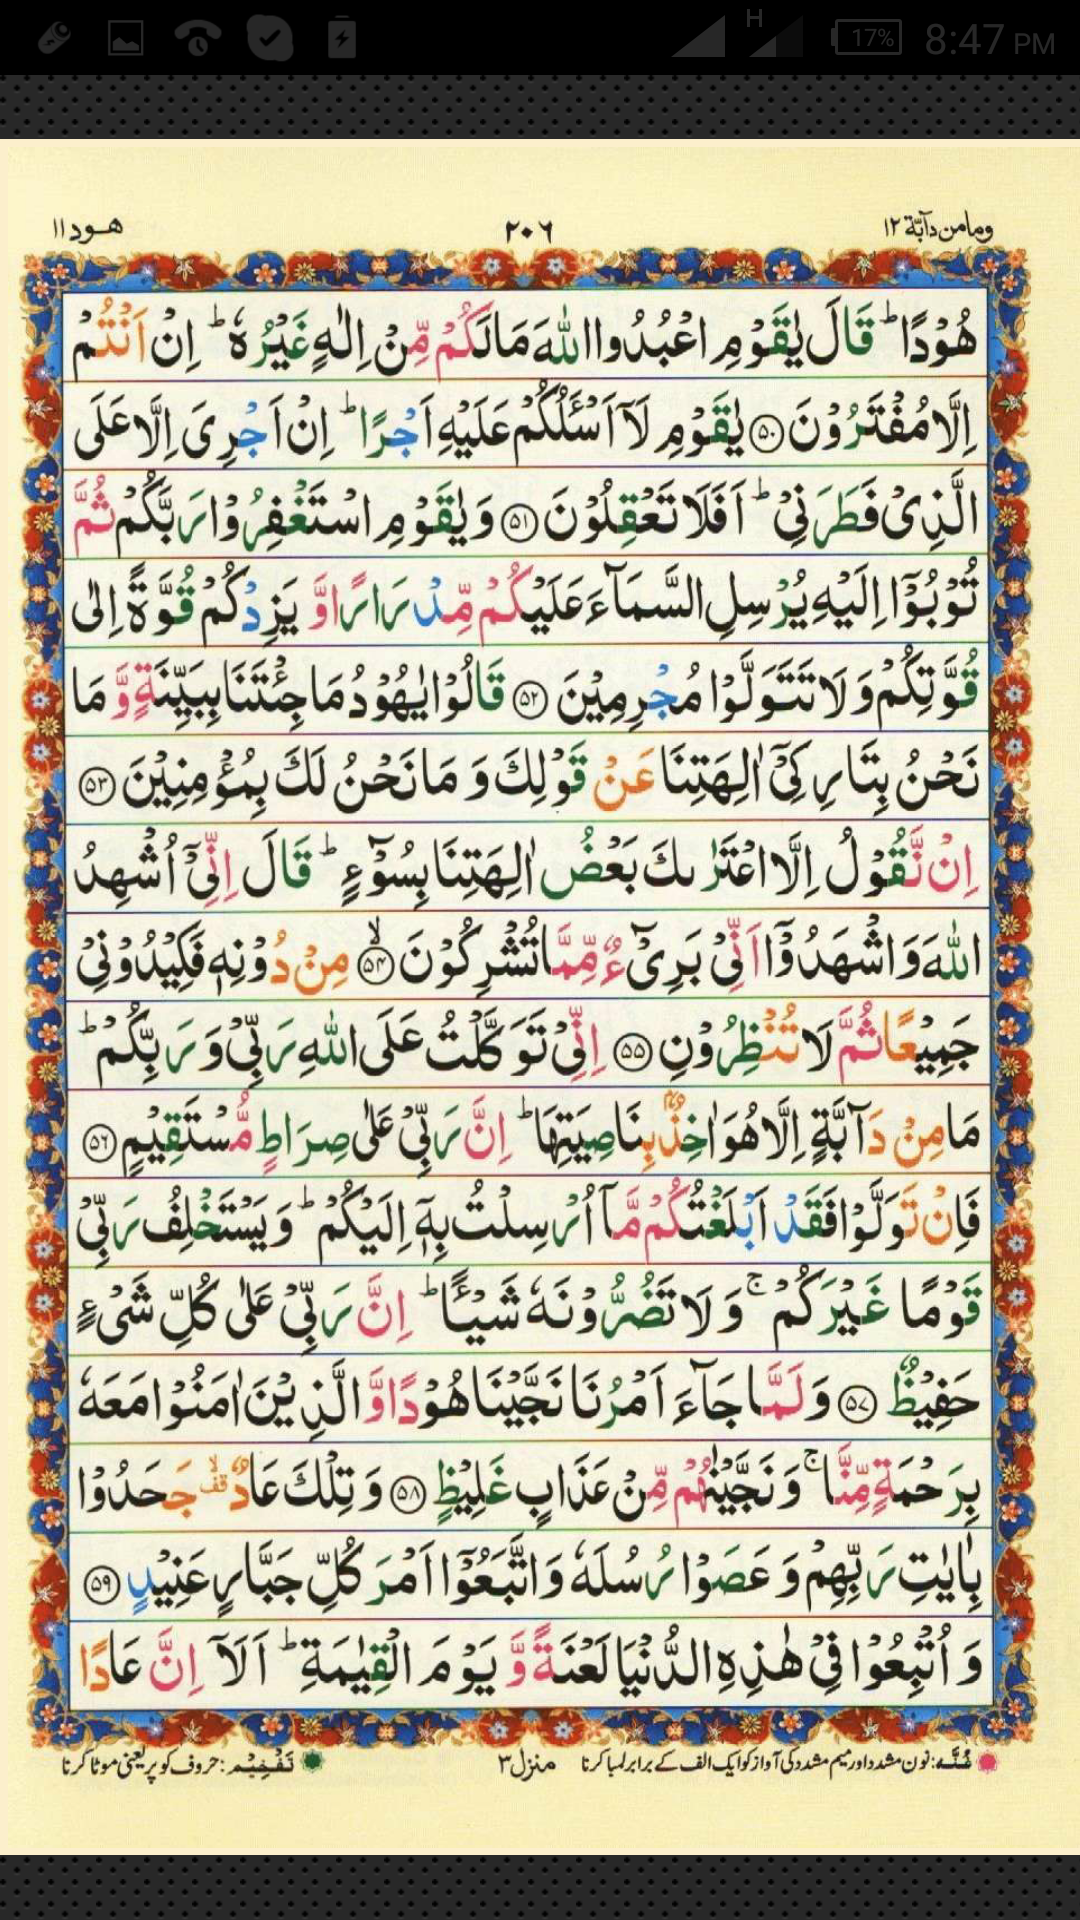 H 17% 8:47 PM
وما من دآبّة ١٢ ٢٠٦ هود ١١
هُوْدًا ؕ قَالَ يٰقَوْمِ اعْبُدُوا اللّٰهَ مَا لَكُمْ مِّنْ اِلٰهٍ غَيْرُهٗ ؕ اِنْ اَنْتُمْ
اِلَّا مُفْتَرُوْنَ ﴿۵۰﴾ يٰقَوْمِ لَاۤ اَسْـَٔلُكُمْ عَلَيْهِ اَجْرًا ؕ اِنْ اَجْرِیَ اِلَّا عَلَی
الَّذِیْ فَطَرَنِیْ ؕ اَفَلَا تَعْقِلُوْنَ ﴿۵۱﴾ وَ يٰقَوْمِ اسْتَغْفِرُوْا رَبَّكُمْ ثُمَّ
تُوْبُوْۤا اِلَيْهِ يُرْسِلِ السَّمَآءَ عَلَيْكُمْ مِّدْرَارًا وَّ يَزِدْكُمْ قُوَّةً اِلٰی
قُوَّتِكُمْ وَ لَا تَتَوَلَّوْا مُجْرِمِيْنَ ﴿۵۲﴾ قَالُوْا يٰهُوْدُ مَا جِئْتَنَا بِبَيِّنَةٍ وَّ مَا
نَحْنُ بِتَارِكِیْۤ اٰلِهَتِنَا عَنْ قَوْلِكَ وَ مَا نَحْنُ لَكَ بِمُؤْمِنِيْنَ ﴿۵۳﴾
اِنْ نَّقُوْلُ اِلَّا اعْتَرٰىكَ بَعْضُ اٰلِهَتِنَا بِسُوْٓءٍ ؕ قَالَ اِنِّیْۤ اُشْهِدُ
اللّٰهَ وَ اشْهَدُوْۤا اَنِّیْ بَرِیْٓءٌ مِّمَّا تُشْرِكُوْنَ ﴿۵۴﴾ۙ مِنْ دُوْنِهٖ فَكِيْدُوْنِیْ
جَمِيْعًا ثُمَّ لَا تُنْظِرُوْنِ ﴿۵۵﴾ اِنِّیْ تَوَكَّلْتُ عَلَی اللّٰهِ رَبِّیْ وَ رَبِّكُمْ ؕ
مَا مِنْ دَآبَّةٍ اِلَّا هُوَ اٰخِذٌۢ بِنَاصِيَتِهَا ؕ اِنَّ رَبِّیْ عَلٰی صِرَاطٍ مُّسْتَقِيْمٍ ﴿۵۶﴾
فَاِنْ تَوَلَّوْا فَقَدْ اَبْلَغْتُكُمْ مَّاۤ اُرْسِلْتُ بِهٖۤ اِلَيْكُمْ ؕ وَ يَسْتَخْلِفُ رَبِّیْ
قَوْمًا غَيْرَكُمْ ۚ وَ لَا تَضُرُّوْنَهٗ شَيْـًٔا ؕ اِنَّ رَبِّیْ عَلٰی كُلِّ شَیْءٍ
حَفِيْظٌ ﴿۵۷﴾ وَ لَمَّا جَآءَ اَمْرُنَا نَجَّيْنَا هُوْدًا وَّ الَّذِيْنَ اٰمَنُوْا مَعَهٗ
بِرَحْمَةٍ مِّنَّا ۚ وَ نَجَّيْنٰهُمْ مِّنْ عَذَابٍ غَلِيْظٍ ﴿۵۸﴾ وَ تِلْكَ عَادٌ ۙ۫ قف جَحَدُوْا
بِاٰيٰتِ رَبِّهِمْ وَ عَصَوْا رُسُلَهٗ وَ اتَّبَعُوْۤا اَمْرَ كُلِّ جَبَّارٍ عَنِيْدٍ ﴿۵۹﴾
وَ اُتْبِعُوْا فِیْ هٰذِهِ الدُّنْيَا لَعْنَةً وَّ يَوْمَ الْقِيٰمَةِ ؕ اَلَاۤ اِنَّ عَادًا
غُنَّه: نون مشدد اور میم مشدد کی آواز کو ایک الف کے برابر لمبا کرنا منزل ۳ تَفْخِیْم: حروف کو پُر یعنی موٹا کرنا